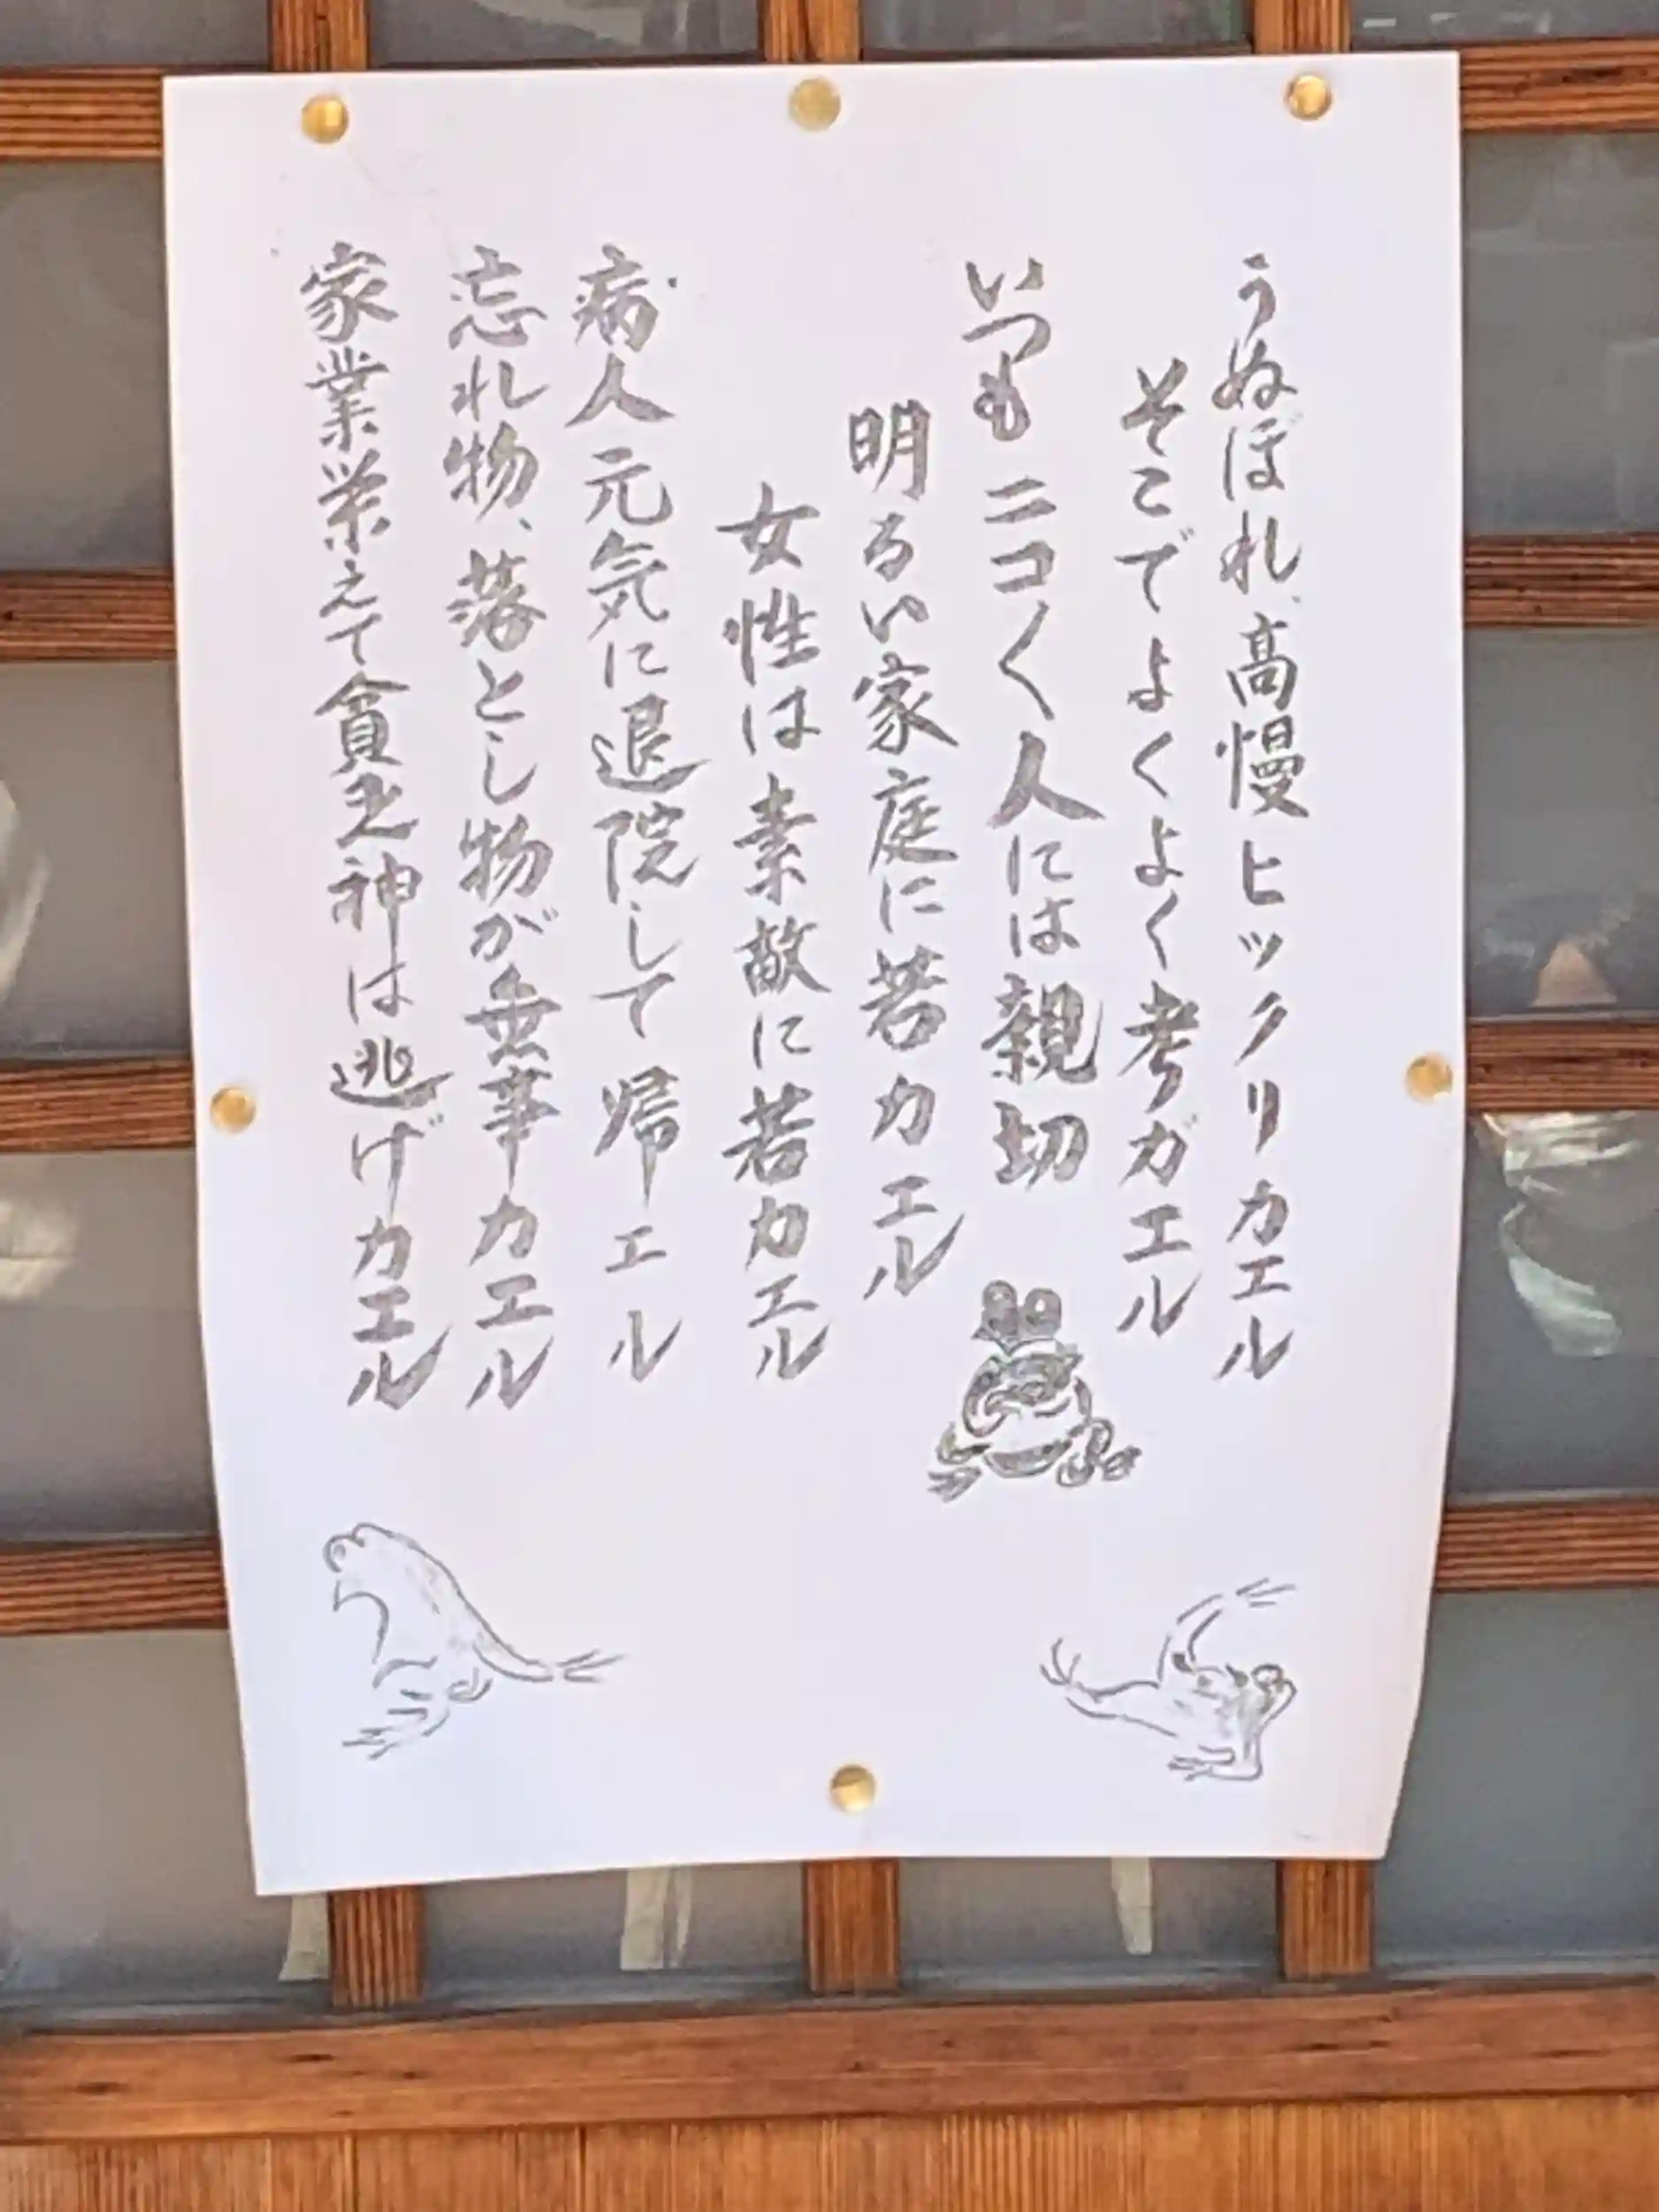 うぬぼれ、高慢ヒックリカエル
そこでよくよく考ガエル
いつもニコ〱人には親切
明るい家庭に若カエル
女性は素敵に若カエル
病人元気に退院して帰エル
忘れ物、落とし物が無事カエル
家業栄えて貧乏神は逃げカエル